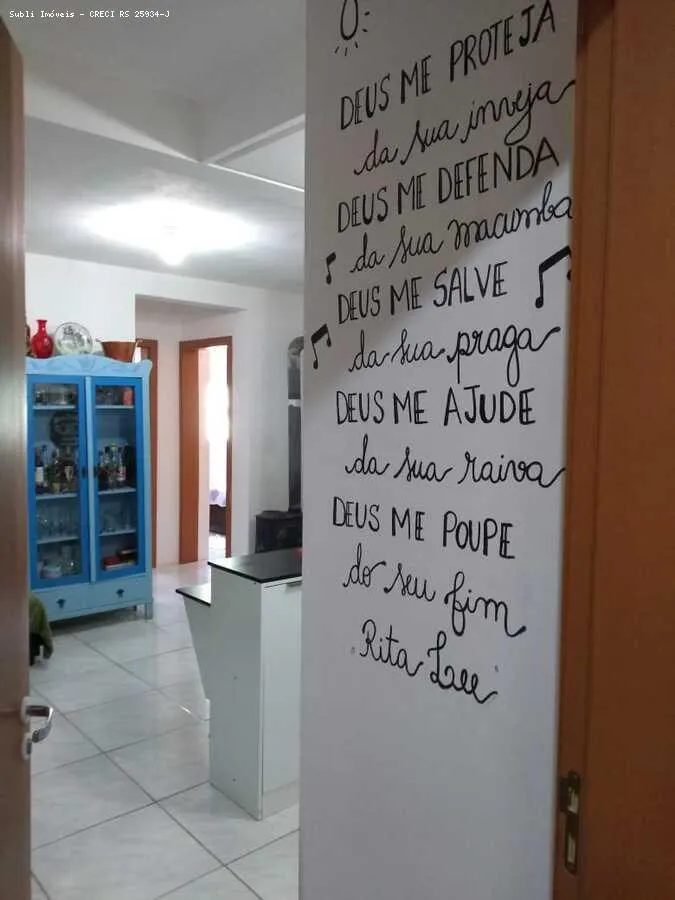 Subli Imóveis - CRECI RS 25934-J
DEUS ME PROTEJA
da sua inveja
DEUS ME DEFENDA
da sua macumba
DEUS ME SALVE
da sua praga
DEUS ME AJUDE
da sua raiva
DEUS ME POUPE
do seu fim
Rita Lee